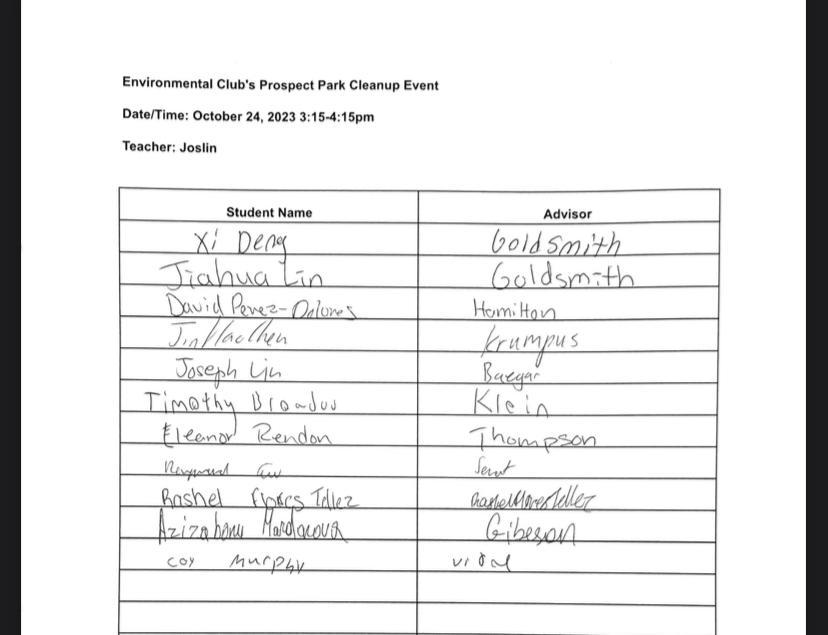 Environmental Club's Prospect Park Cleanup Event
Date/Time: October 24, 2023 3:15-4:15pm
Teacher: Joslin
Student Name Advisor
Xi Deng Goldsmith
Jiahua Lin Goldsmith
David Perez-Dolores Hamilton
Krumpus
Joseph Lin
Timothy Broadus Klein
Eleanor Rendon Thompson
Rashel Flores Tellez Rashel Flores Tellez
Gibeson
Coy Murphy Vidal